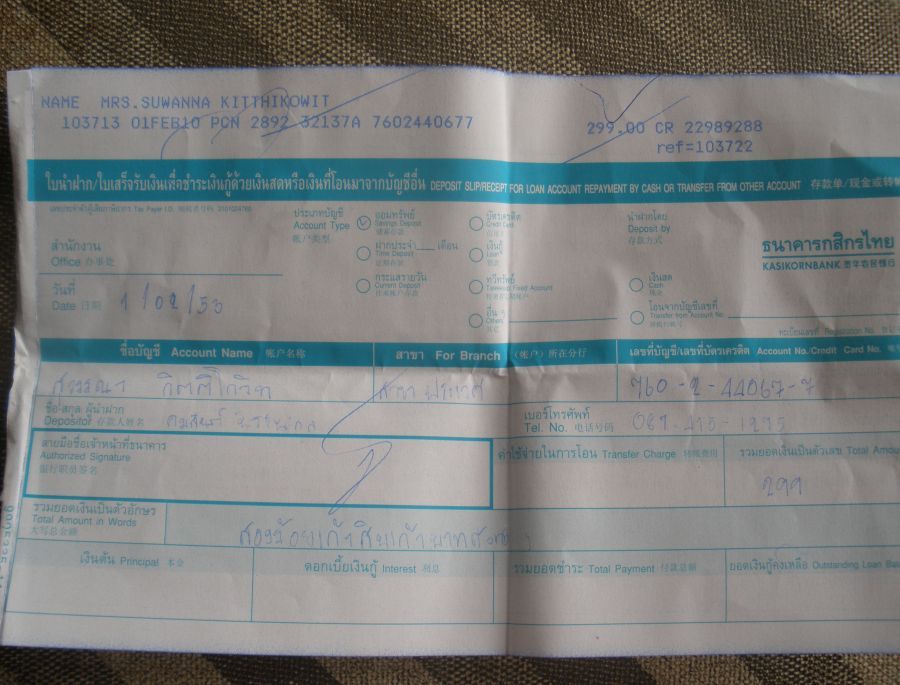 NAME MRS.SUWANNA KITTHIKOWIT
103713 01FEB10 PCN 2892 32137A 7602440677
299.00 CR 22989288
ref=103722
ใบนำฝาก/ใบเสร็จรับเงินเพื่อชำระเงินกู้ด้วยเงินสดหรือเงินที่โอนมาจากบัญชีอื่น DEPOSIT SLIP/RECEIPT FOR LOAN ACCOUNT REPAYMENT BY CASH OR TRANSFER FROM OTHER ACCOUNT 存款单/现金或转帐
Tax Payer I.D.
สำนักงาน
Office 办事处
วันที่
Date 日期 1/02/53
ประเภทบัญชี
Account Type
帐户类型
ออมทรัพย์
Savings Deposit
ฝากประจำ เดือน
Time Deposit
กระแสรายวัน
Current Deposit
บัตรเครดิต
Credit Card
เงินกู้
Loan
ทวีทรัพย์
Taweesup Fixed Account
อื่น ๆ
Others
นำฝากโดย
Deposit by
存款方式
เงินสด
Cash
现金
โอนจากบัญชีเลขที่
Transfer from Account No.
ธนาคารกสิกรไทย
KASIKORNBANK 泰华农民银行
ทะเบียนเลขที่ Registration No.
ชื่อบัญชี Account Name 帐户名称
สาขา For Branch (帐户) 所在分行
เลขที่บัญชี/เลขที่บัตรเครดิต Account No./Credit Card No.
สุวรรณา กิตติโกวิท
สาขา ประเวศ
760-2-44067-7
ชื่อ-สกุล ผู้นำฝาก
Depositor 存款人姓名
เบอร์โทรศัพท์
Tel. No. 电话号码
ลายมือชื่อเจ้าหน้าที่ธนาคาร
Authorized Signature
银行职员签名
ค่าใช้จ่ายในการโอน Transfer Charge 转帐费用
รวมยอดเงินเป็นตัวเลข Total Amou
299
รวมยอดเงินเป็นตัวอักษร
Total Amount in Words
大写总金额
สองร้อยเก้าสิบเก้าบาทถ้วน
เงินต้น Principal 本金
ดอกเบี้ยเงินกู้ Interest 利息
รวมยอดชำระ Total Payment 付款总额
ยอดเงินกู้คงเหลือ Outstanding Loan Bala